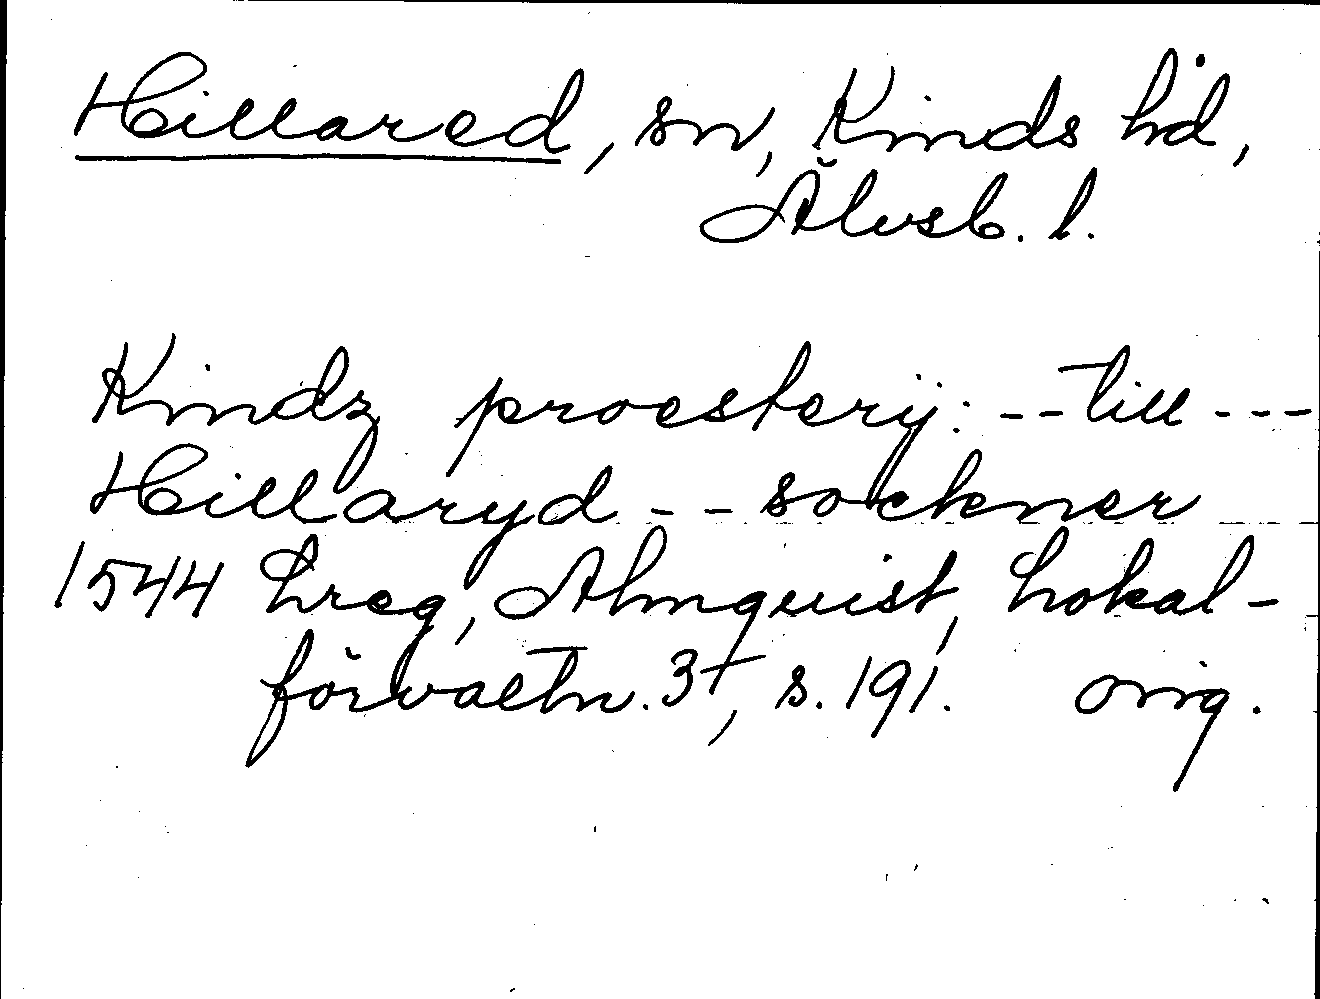 Hillared, sn, Kinds hd,
Älvsb. l.
Kindz proesterij: -- till ---
Hillaryd -- sockner
1544 Lreg, Almquist, Lokal-
förvaltn. 3+, s. 191. orig.